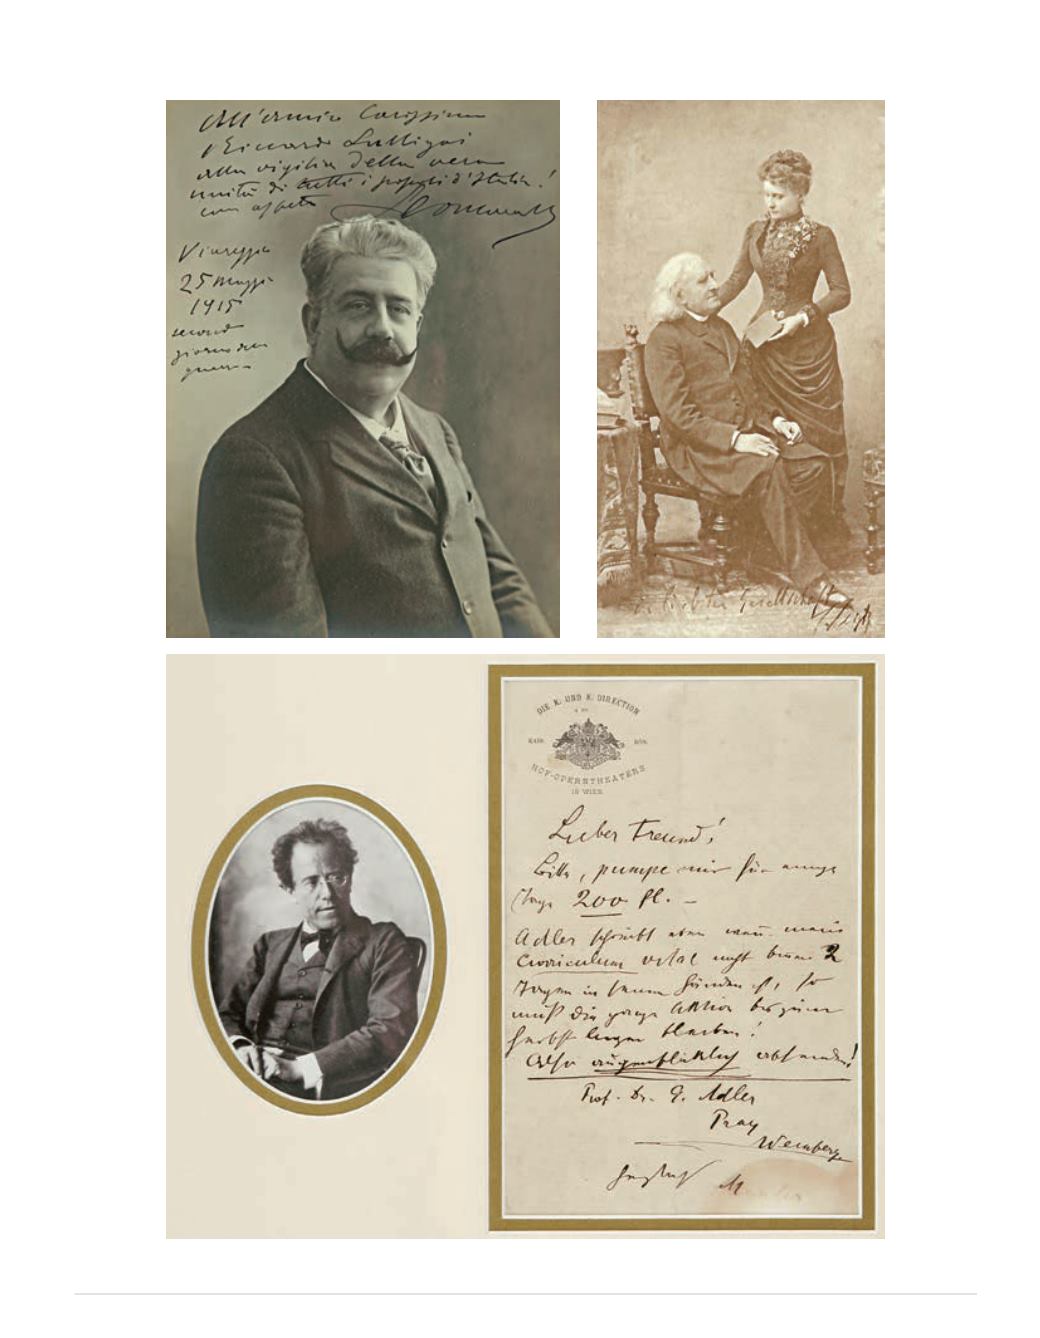 All'amico Carissimo
Riccardo
alla vigilia della vera
unità di tutti i popoli d'Italia!
con affetto Leoncavallo
Viareggio
25 Maggio
1915
secondo
giorno della
guerra
Gesellschaft
DIE K. UND K. DIRECTION
KAIS. KÖN.
HOF-OPERNTHEATERS
IN WIEN
Lieber Freund!
Bitte, pumpe mir für einige
Tage 200 fl. –
Adler schreibt eben wenn mein
Curriculum vitae nicht binnen 2
Tagen in seinen Händen ist, so
muß die ganze Aktion bis zum
Herbst liegen bleiben!
Also augenblicklich absenden!
Prof. Dr. G. Adler
Prag
Weinberge